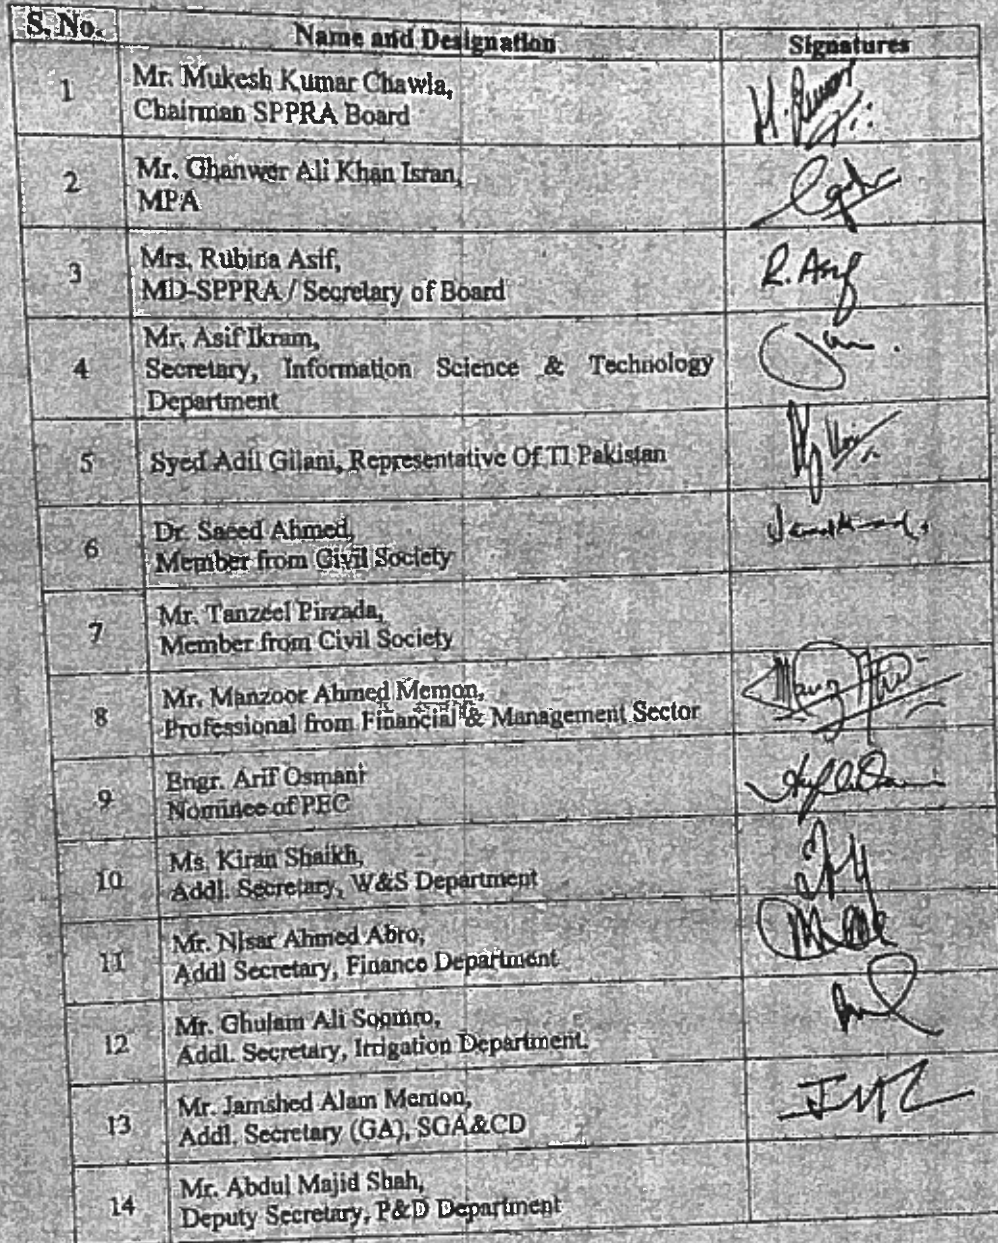 S. No. Name and Designation Signatures
1 Mr. Mukesh Kumar Chawla,
Chairman SPPRA Board
2 Mr. Ghanwer Ali Khan Isran,
MPA
3 Mrs. Rubina Asif,
MD-SPPRA / Secretary of Board
R. Asif
4 Mr. Asif Ikram,
Secretary, Information Science & Technology
Department
5 Syed Adil Gilani, Representative Of TI Pakistan
6 Dr. Saeed Ahmed,
Member from Civil Society
7 Mr. Tanzeel Pirzada,
Member from Civil Society
8 Mr. Manzoor Ahmed Memon,
Professional from Financial & Management Sector
9 Engr. Arif Osmani
Nominee of PEC
10 Ms. Kiran Shaikh,
Addl. Secretary, W&S Department
11 Mr. Nisar Ahmed Abro,
Addl Secretary, Finance Department
12 Mr. Ghulam Ali Soomro,
Addl. Secretary, Irrigation Department.
13 Mr. Jamshed Alam Memon,
Addl. Secretary (GA), SGA&CD
14 Mr. Abdul Majid Shah,
Deputy Secretary, P&D Department